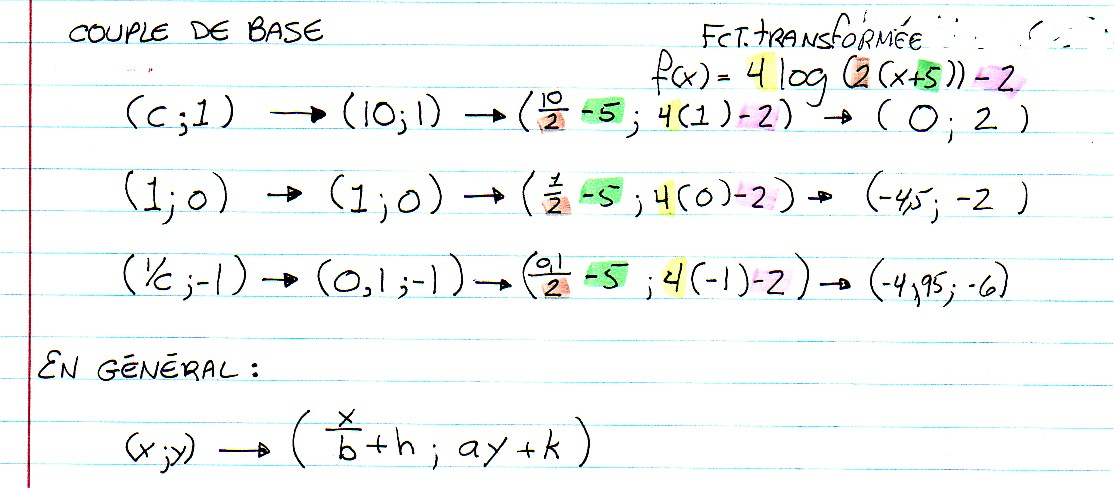 COUPLE DE BASE
FCT. TRANSFORMÉE
f(x) = 4 log (2(x+5)) - 2
(c;1) → (10;1) → (10/2 -5 ; 4(1)-2) → (0; 2)
(1;0) → (1;0) → (1/2 -5 ; 4(0)-2) → (-4,5; -2)
(1/c;-1) → (0,1;-1) → (0,1/2 -5 ; 4(-1)-2) → (-4,95; -6)
EN GÉNÉRAL :
(x;y) → (x/b + h ; ay + k)